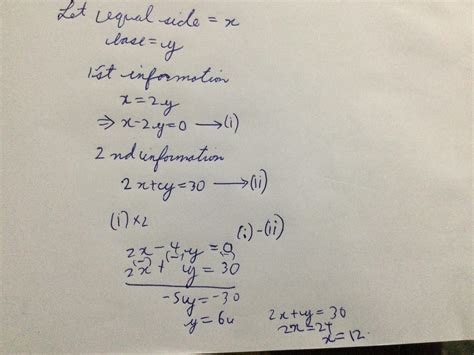 Let equal side = x
base = y
1st information
x = 2y
⇒ x-2y=0 → (i)
2nd information
2x+y=30 → (ii)
(i) × 2
(i) - (ii)
2x - 4y = 0
(-) (-) (-)
2x + y = 30
-5y = -30
y = 6u
2x+y = 30
2x = 24
x = 12.